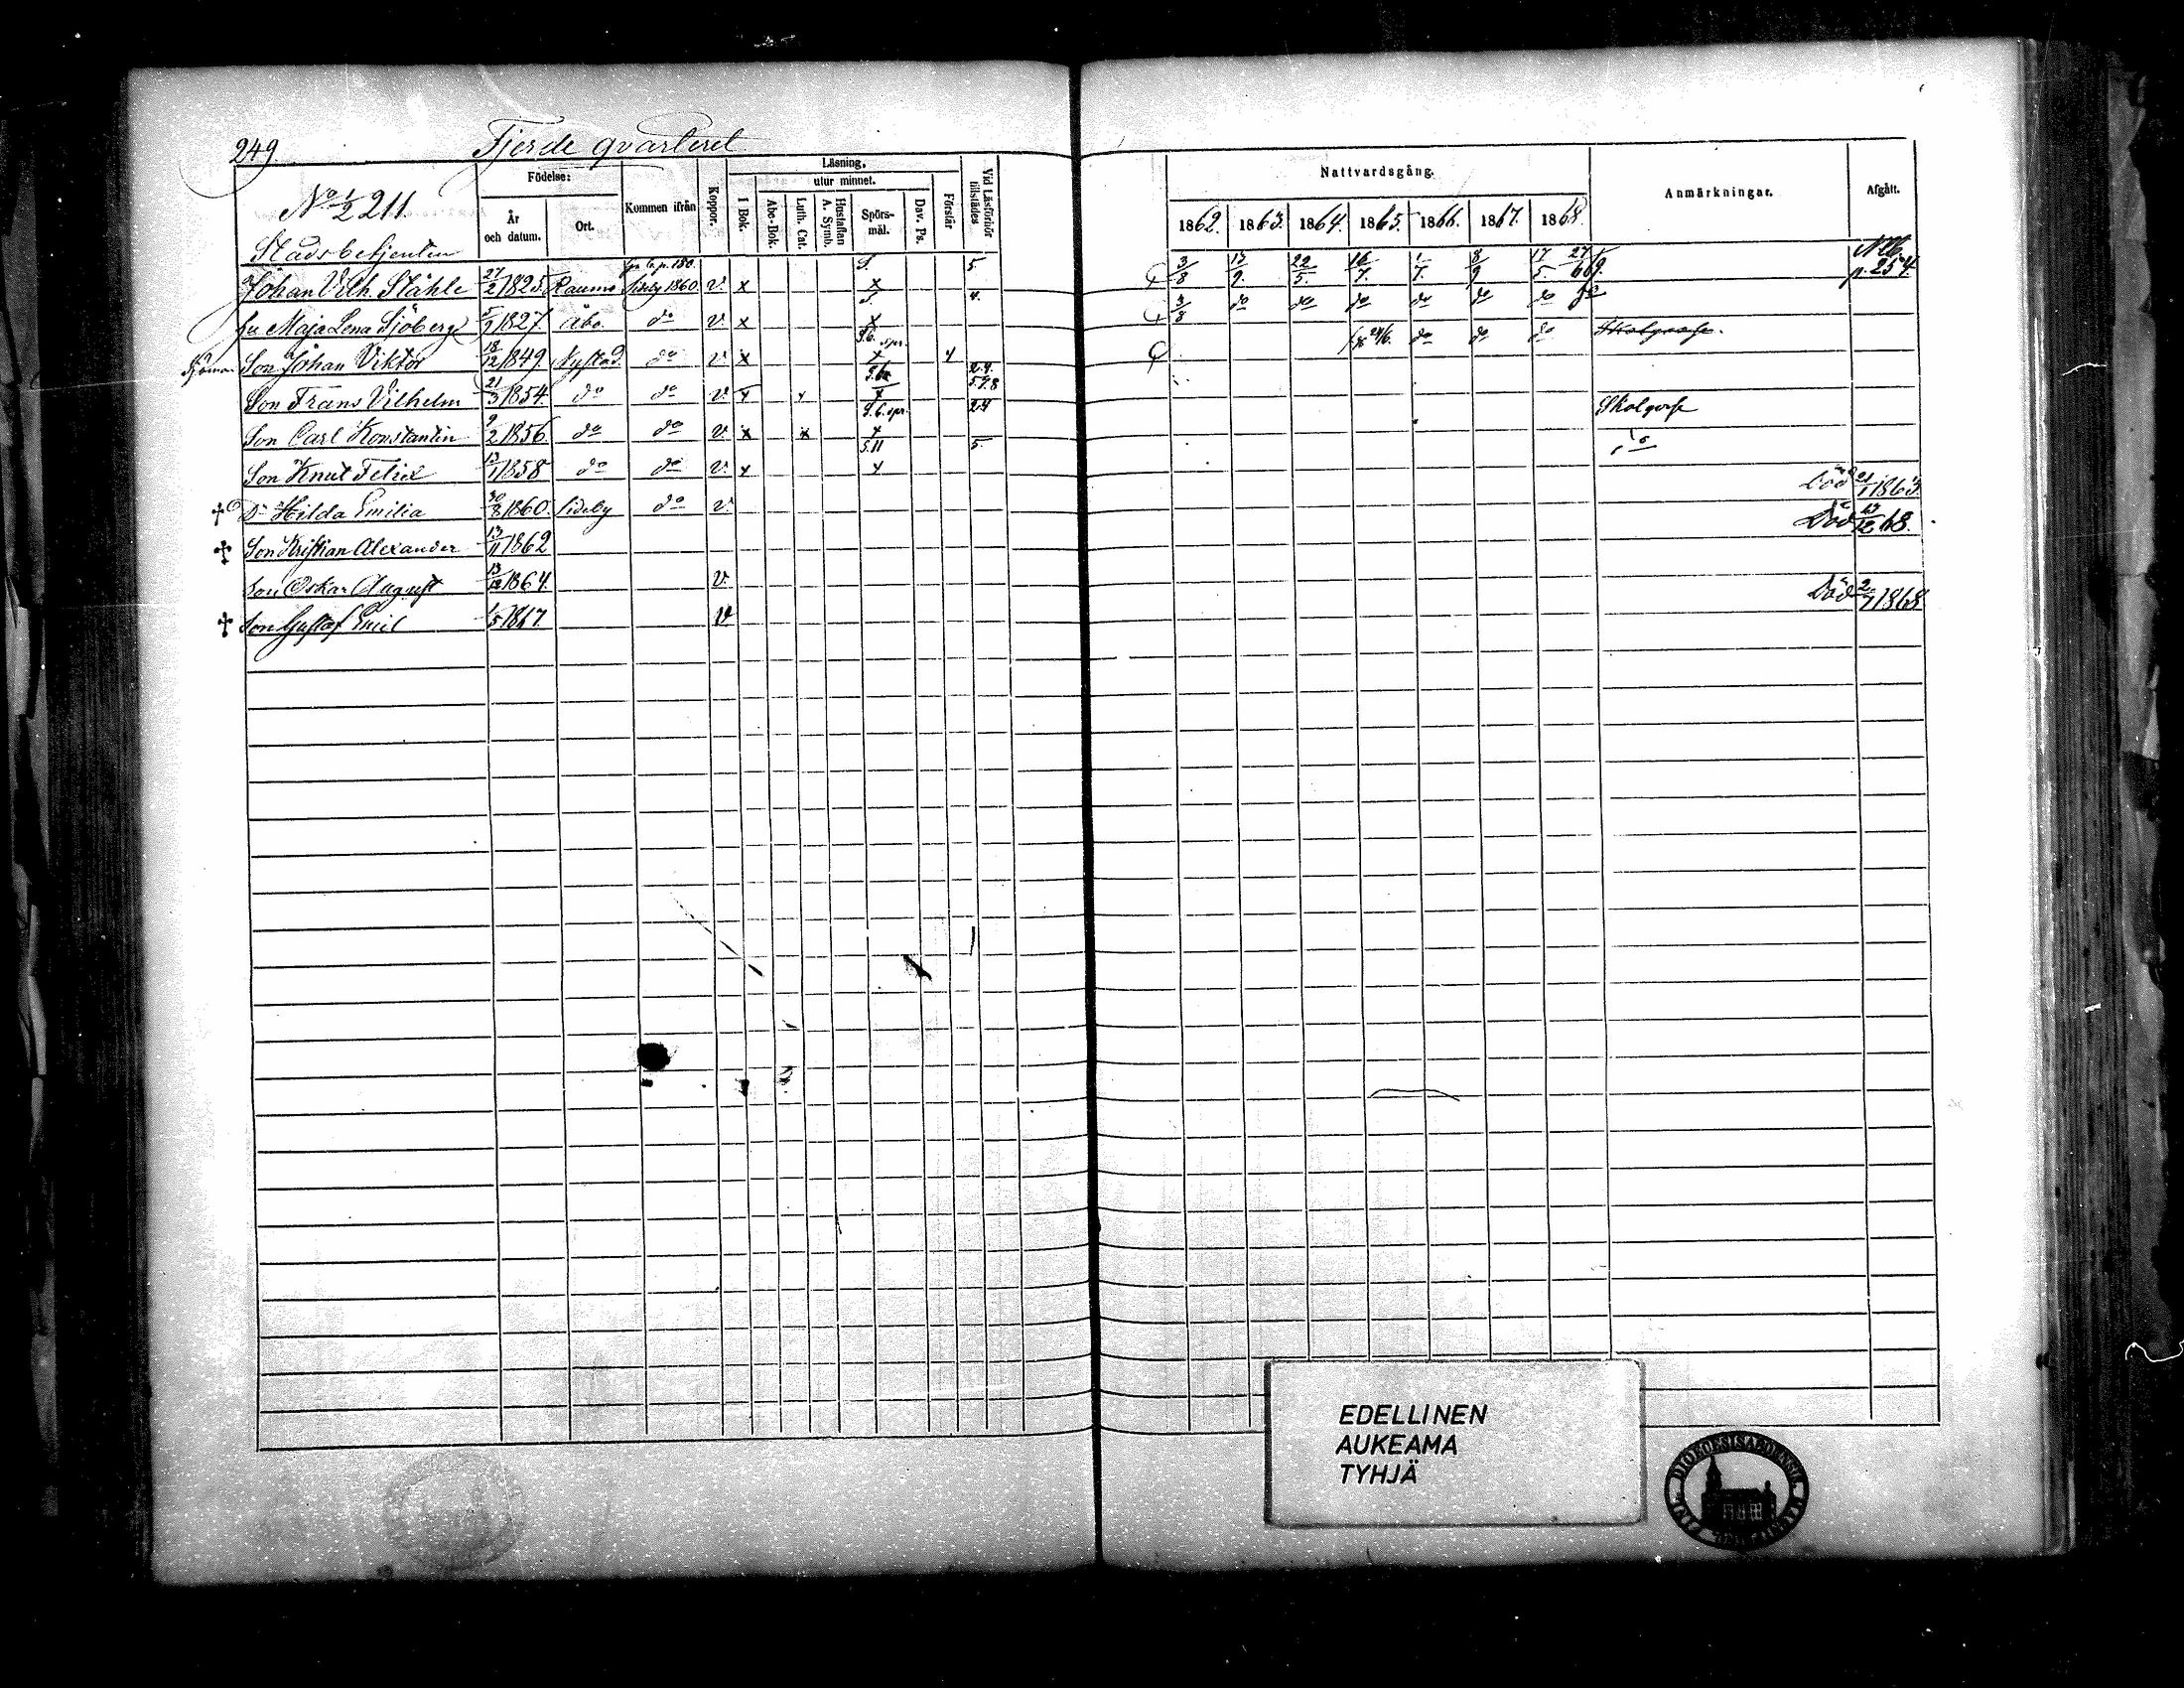 249 Fjerde qvarteret
Födelse: Kommen ifrån Koppor. Läsning. Vid Läsförhör tillstädes
utur minnet.
År och datum. Ort. I Bok. Abc-Bok. Luth. Cat. Hustaflan A. Symb. Spörsmål. Dav. Ps. Förstår
Nattvardsgång. Anmärkningar. Afgått.
1862. 1863. 1864. 1865. 1866. 1867. 1868.
No 1/2 211.
Stadsbetjenten
Johan Vilh. Ståhle 27/2 1825 Raumo Sideby 1860. v x S. x 5 3/8 13/9. 22/5. 16/7. 1/7. 8/9 17/5. 27/6 69. Nb. p. 254.
hu Maja Lena Sjöberg 1827. Åbo. do v. x S. x 4. 3/8 do do do do do do do
Son Johan Viktor 18/12 1849. Nystad. do v x x 24/6. do do do Skolgosse.
Son Frans Vilhelm 21/3 1854. do do v x x x
Son Carl Konstantin 9/2 1856 do do v. x x x 2.4 Skolgosse
Son Knut Felix 13/1 1858 do do v. x 5.11 x 5.
† Dr Hilda Emilia 30/8 1860. Sideby do v. Död 21/1 1863.
† Son Kristian Alexander 13/11 1862 Död 13/12 68.
Son Oskar August 13/12 1864. v.
† Son Gustaf Emil 1/5 1867 v Död 2/7 1868
EDELLINEN
AUKEAMA
TYHJÄ